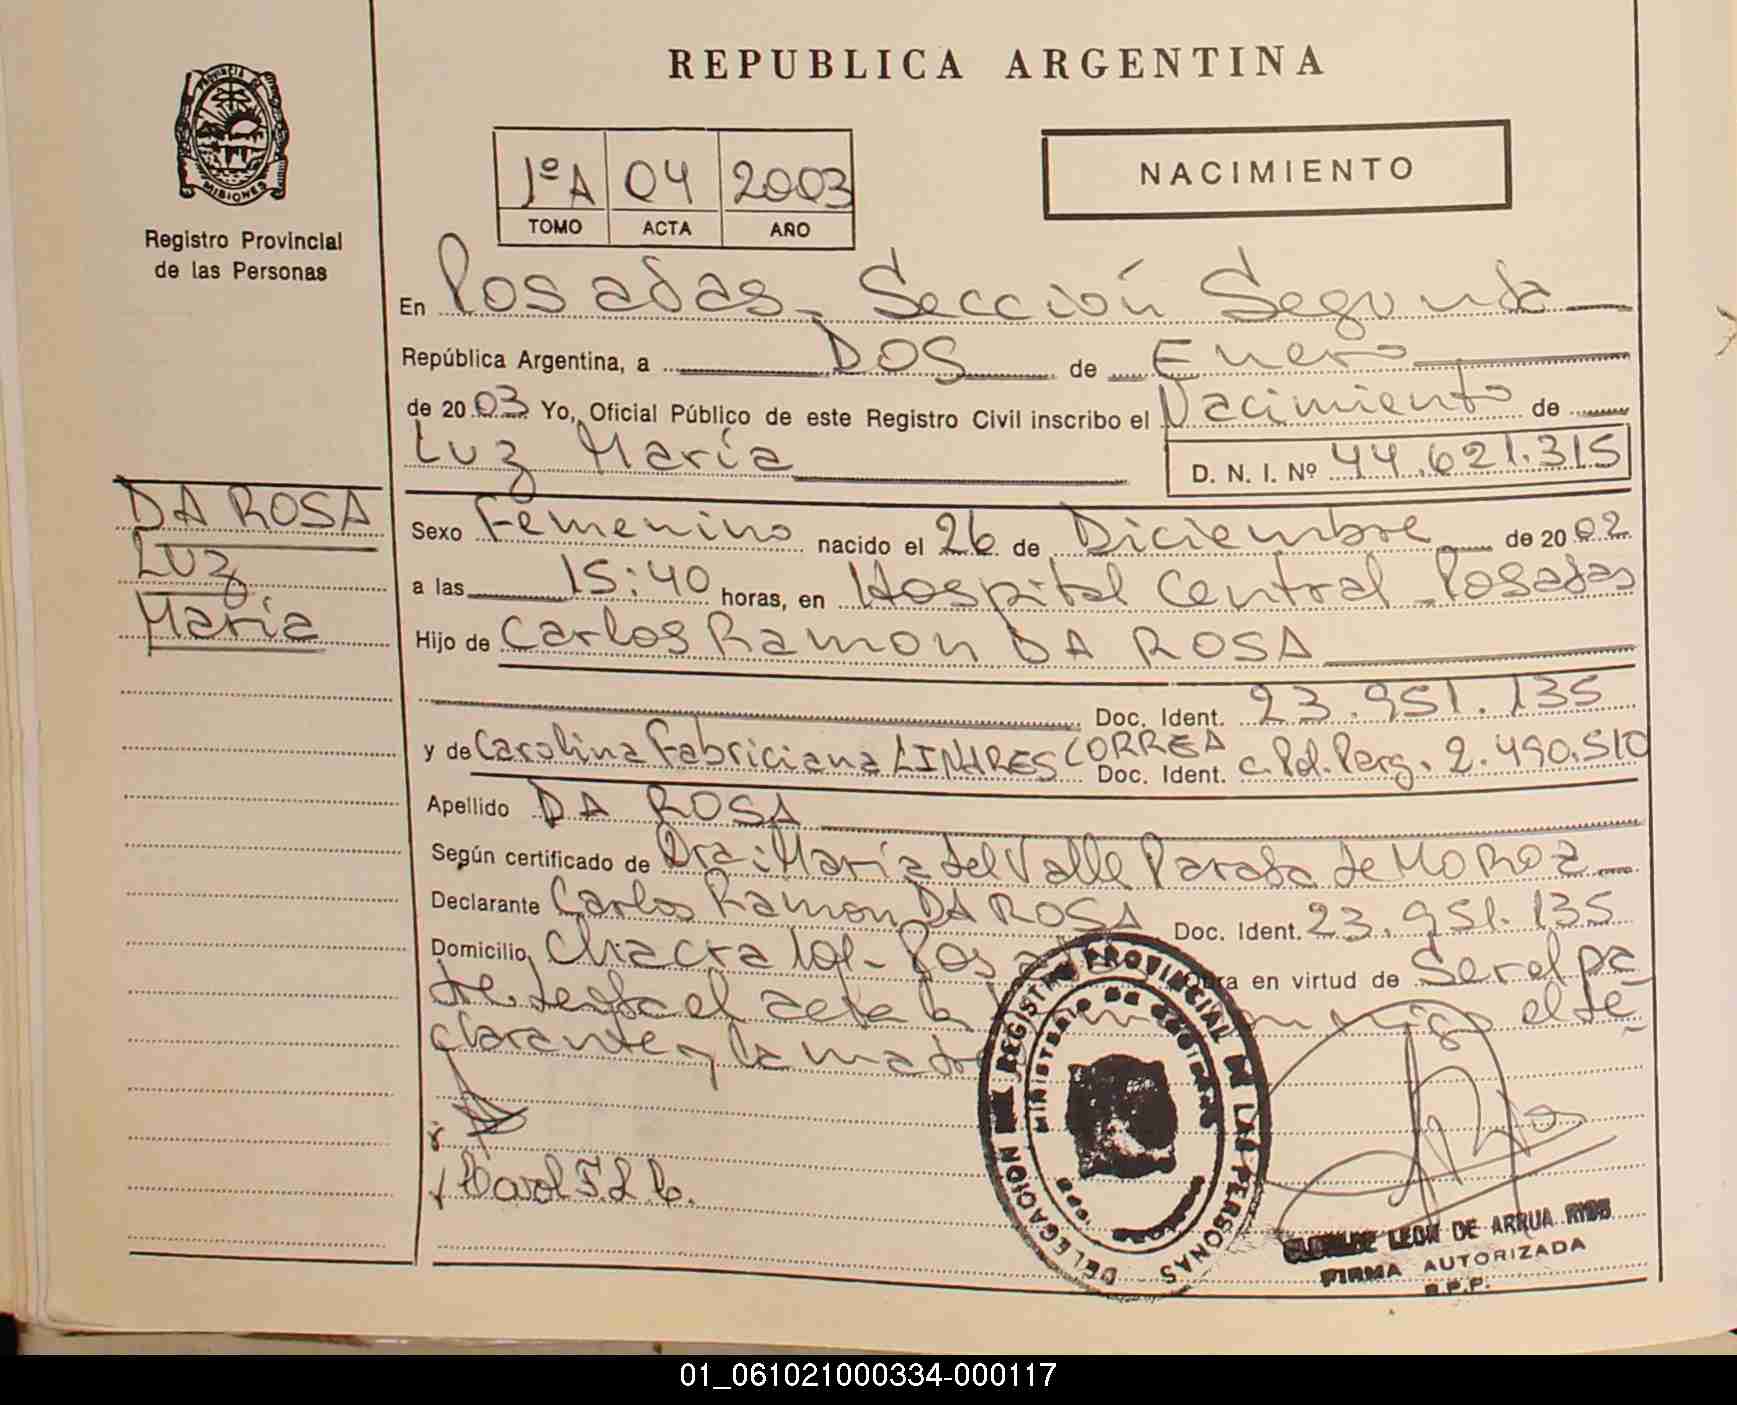 REPUBLICA ARGENTINA
PROVINCIA DE
MISIONES
Registro Provincial
de las Personas
1º A 04 2003
TOMO ACTA AÑO
NACIMIENTO
En Posadas - Sección Segunda
República Argentina, a DOS de Enero
de 2003 Yo, Oficial Público de este Registro Civil inscribo el Nacimiento de
Luz María
D. N. I. Nº 44.621.315
DA ROSA
Luz
María
Sexo Femenino nacido el 26 de Diciembre de 2002
a las 15:40 horas, en Hospital Central - Posadas
Hijo de Carlos Ramon DA ROSA
Doc. Ident. 23.951.135
y de Carolina Fabriciana LINARES CORREA
Doc. Ident. c. Pol. Parg. 2.490.510
Apellido DA ROSA
Según certificado de Dra: María del Valle Parada de MOROZ
Declarante Carlos Ramon DA ROSA Doc. Ident. 23.951.135
Domicilio Chacra 101 - Posadas Obra en virtud de Ser el pa-
dre. el acta la conmigo el de-
clarante y la madre
Carol F. L. C.
DELEGACION DEL REGISTRO PROVINCIAL DE LAS PERSONAS
MINISTERIO DE GOBIERNO
LEON DE ARRUA
FIRMA AUTORIZADA
R.P.P.
01_061021000334-000117